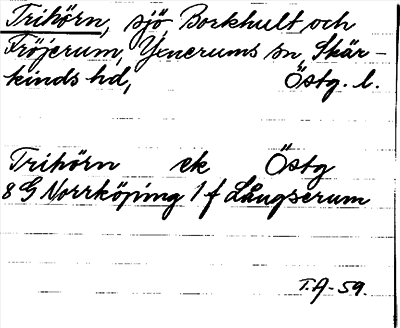 Trihörn, sjö, Borkhult och
Fröjerum, Yxnerums sn, Skär-
kinds hd, Östg. l.
Trihörn ek Östg
8 G Norrköping 1 f Långserum
T.A-59.